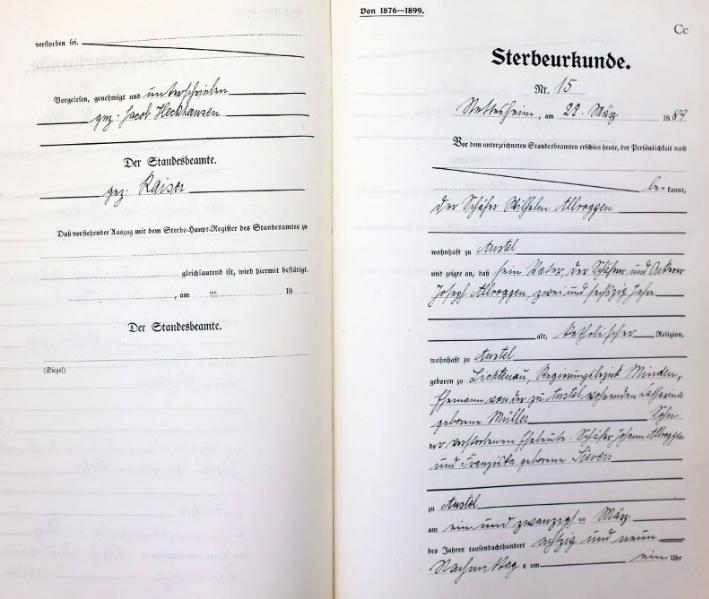 verstorben sei.
Vorgelesen, genehmigt und unterschrieben
gez. Jacob Heckhausen
Der Standesbeamte.
gez. Kaiser
Daß vorstehender Auszug mit dem Sterbe-Haupt-Register des Standesamtes zu
gleichlautend ist, wird hiermit bestätigt.
, am ten 18
Der Standesbeamte.
(Siegel)
Von 1876—1899.
Cc
Sterbeurkunde.
Nr. 15
Nettesheim, am 22. März 1889
Vor dem unterzeichneten Standesbeamten erschien heute, der Persönlichkeit nach
be kannt,
der Schäfer Wilhelm Albroggen
wohnhaft zu Anstel
und zeigte an, daß sein Vater, der Schäfer und Ackerer
Joseph Albroggen, zwei und sechszig Jahre
alt, katholischer Religion,
wohnhaft zu Anstel
geboren zu Lichtenau, Regierungsbezirk Minden,
Ehemann von der zu Anstel wohnenden Catharina
geborene Müller Sohn
der verstorbenen Eheleute Schäfer Johann Albroggen
und Franziska geborene Sievers
zu Anstel
am ein und zwanzigsten März
des Jahres tausendachthundert achtzig und neun
Nachmittags um ein Uhr